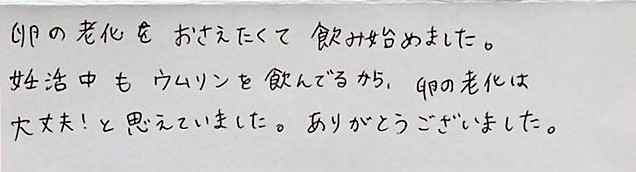 卵の老化をおさえたくて飲み始めました。
妊活中もウムリンを飲んでるから、卵の老化は
大丈夫！と思えていました。ありがとうございました。